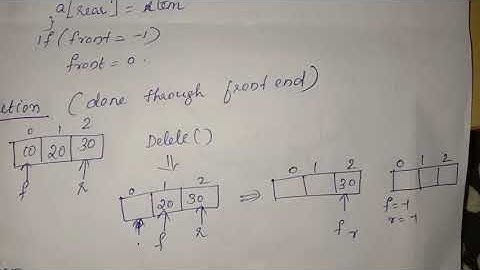 a[rear] = item
}
if (front = -1)
front = 0.
etion (done through front end)
0 1 2
10 20 30
f r
Delete()
⇓
1 2
20 30
f r
⇒
0 1 2
30
f r
0 1 2
f = -1
r = -1